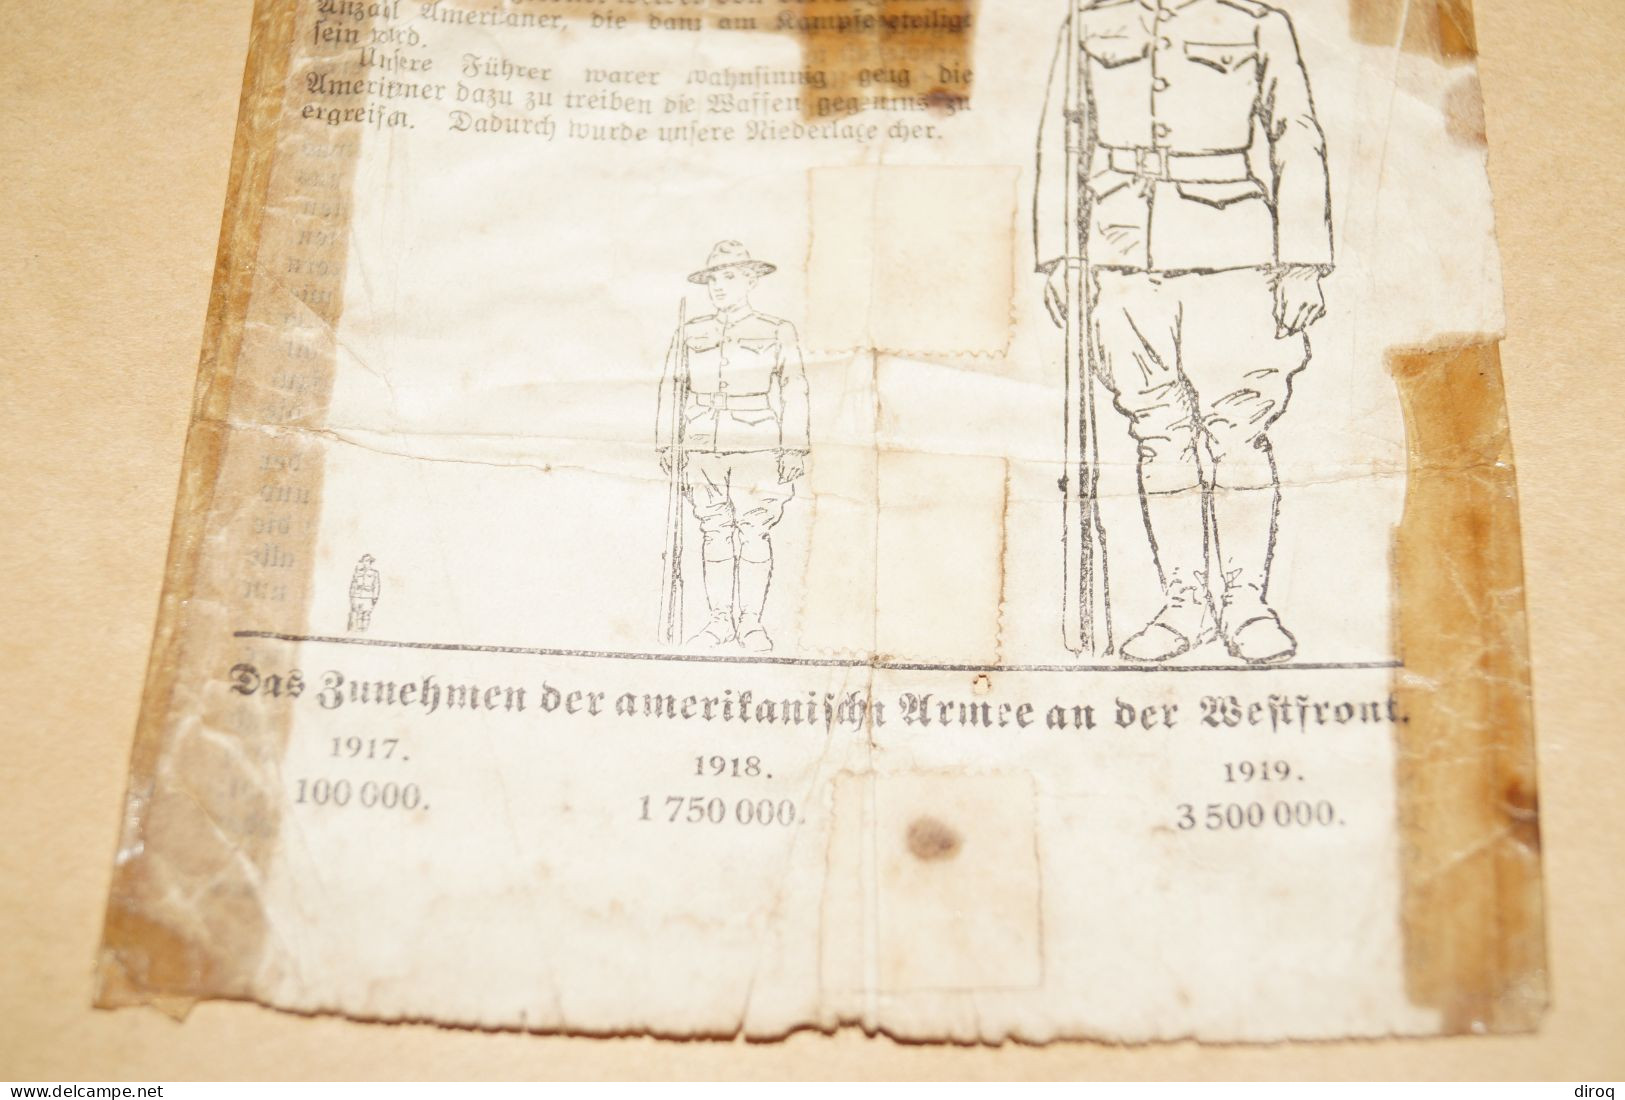 Anzahl Amerikaner, die dann am Kampfe beteiligt
sein wird.
Unsere Führer waren wahnsinnig genug die
Amerikaner dazu zu treiben die Waffen gegen uns zu
ergreifen. Dadurch wurde unsere Niederlage sicher.
Das Zunehmen der amerikanischen Armee an der Westfront.
1917. 1918. 1919.
100 000. 1 750 000. 3 500 000.
diroq